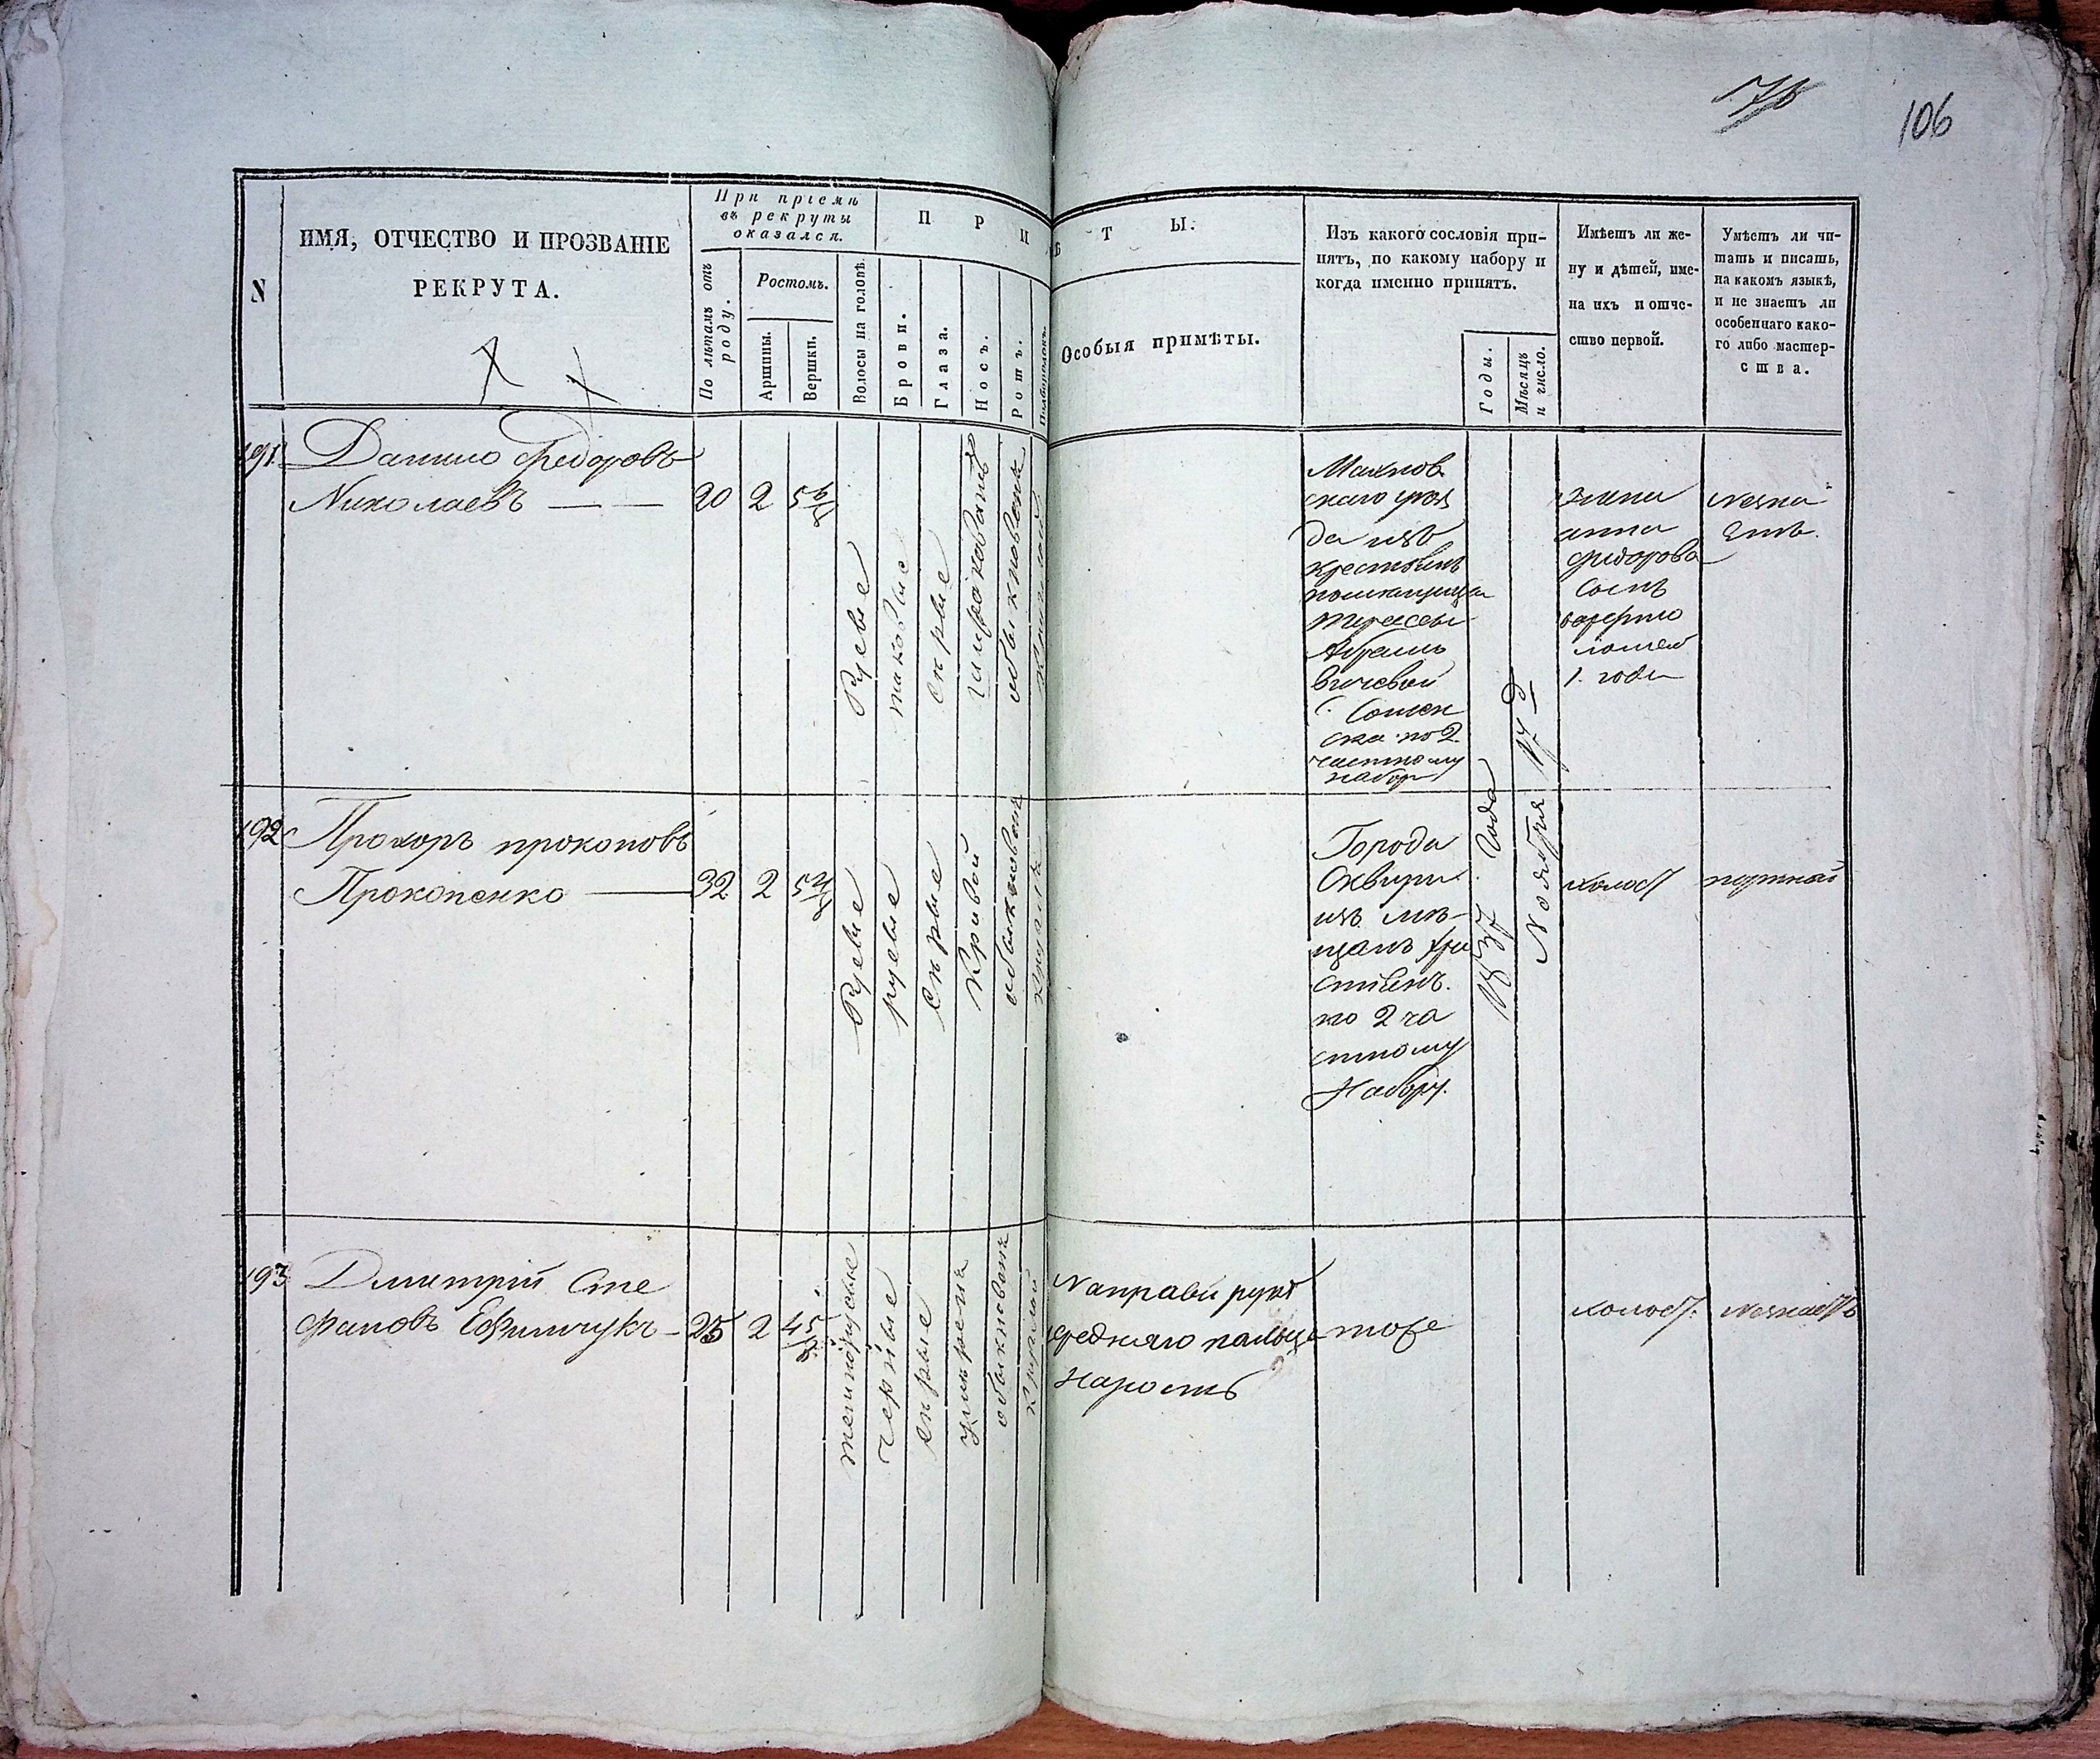 106
N
ИМЯ, ОТЧЕСТВО И ПРОЗВАНІЕ
РЕКРУТА.
При пріемѣ
въ рекруты
оказался.
По лѣтамъ отъ
роду.
Ростомъ.
Аршины.
Вершки.
П Р И
Волосы на головѣ.
Брови.
Глаза.
Носъ.
Ротъ.
Подбородокъ.
Ѣ Т Ы.
Особыя примѣты.
Изъ какого сословія при-
нятъ, по какому набору и
когда именно принятъ.
Годы.
Мѣсяцъ
и число.
Имѣетъ ли же-
ну и дѣтей, име-
на ихъ и отче-
ство первой.
Умѣетъ ли чи-
тать и писать,
на какомъ языкѣ,
и не знаетъ ли
особеннаго како-
го либо мастер-
ства.
191
Данило Федоровъ
Николаевъ
20
2
5 6/8
Русые
таковые
сѣрые
широковатъ
обыкновенъ
Махнов
скаго уѣз
да изъ
крестьянъ
помѣщицы
Терезы
Абрамо
вичевой
по 2
частному
набору
1837 Года
Ноября 17 д
жена
анна
федорова
Сынъ
1. года
Незна
етъ.
192
Прохоръ прокоповъ
Прокопенко
32
2
Русые
русые
сѣрые
Кривой
обыкновенъ
Города
Сквиры
изъ мѣ-
щанъ хри
стіянъ.
по 2 ча
стному
Набору.
холостъ
портной
193
Дмитрій Сте
фановъ Ефимчукъ
25
2
4 5/8
темнорусые
черные
сѣрые
умѣренъ
обыкновенъ
круглый
Направи рукѣ
средняго пальца
наростъ
тоже
холостъ.
Незнаетъ